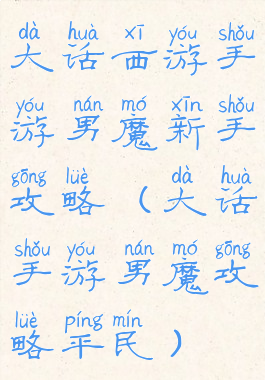 dà huà xī yóu shǒu
大话西游手
yóu nán mó xīn shǒu
游男魔新手
gōng lüè dà huà
攻略（大话
shǒu yóu nán mó gōng
手游男魔攻
lüè píng mín
略平民）